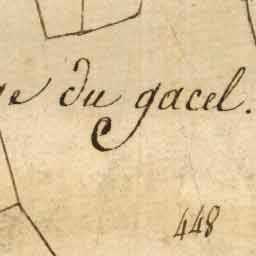 du gacel.
448